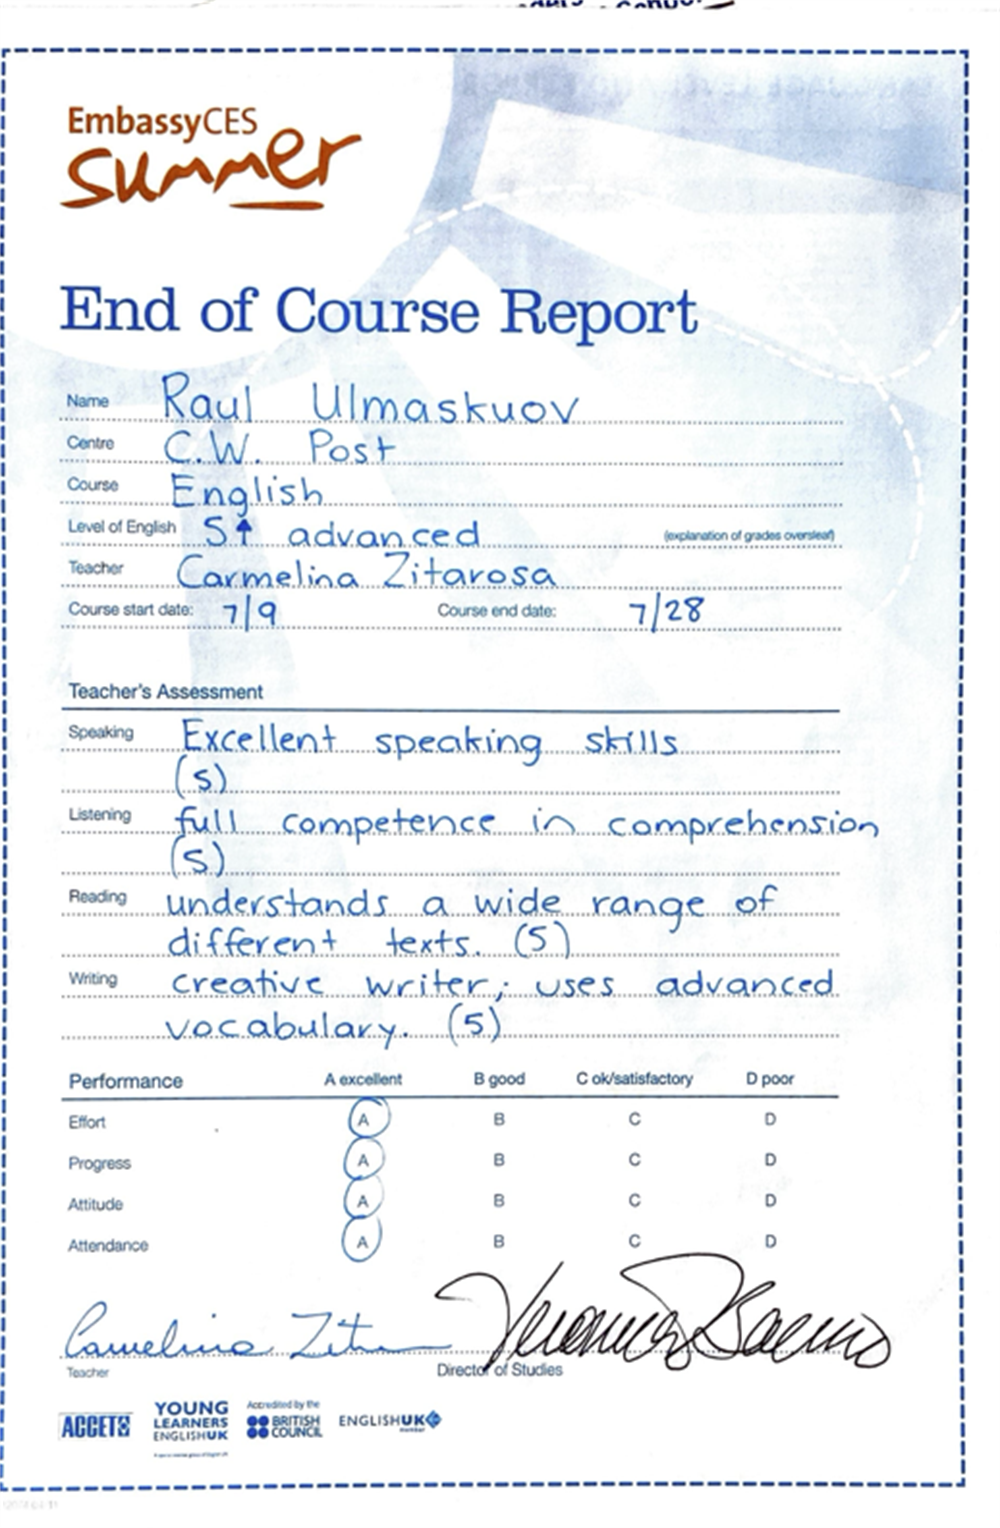 EmbassyCES
summer
End of Course Report
Name Raul Ulmaskuov
Centre C.W. Post
Course English
Level of English 5↑ advanced (explanation of grades overleaf)
Teacher Carmelina Zitarosa
Course start date: 7/9 Course end date: 7/28
Teacher's Assessment
Speaking Excellent speaking skills
(5)
Listening full competence in comprehension
(5)
Reading understands a wide range of
different texts. (5)
Writing creative writer; uses advanced
vocabulary. (5)
Performance A excellent B good C ok/satisfactory D poor
Effort A B C D
Progress A B C D
Attitude A B C D
Attendance A B C D
Teacher Director of Studies
ACCET
YOUNG
LEARNERS
ENGLISHUK
Accredited by the
BRITISH
COUNCIL
ENGLISHUK
member